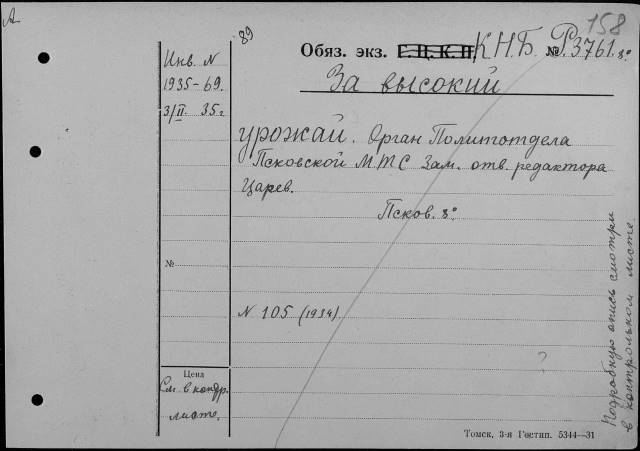 А
158
89
Обяз. экз. Г.Ц.К.П. К.Н.Б. № Р.3761. 8º
Инв. N
1935-69.
3/II 35 г
За высокий
урожай. Орган Политотдела
Псковской МТС Зам. отв. редактора
Царев.
Псков. 8º
№
N 105 (1934).
?
Цена
См. в контр.
листе.
Подробную опись смотри
в контрольном листе
Томск, 3-я Гостип. 5344—31